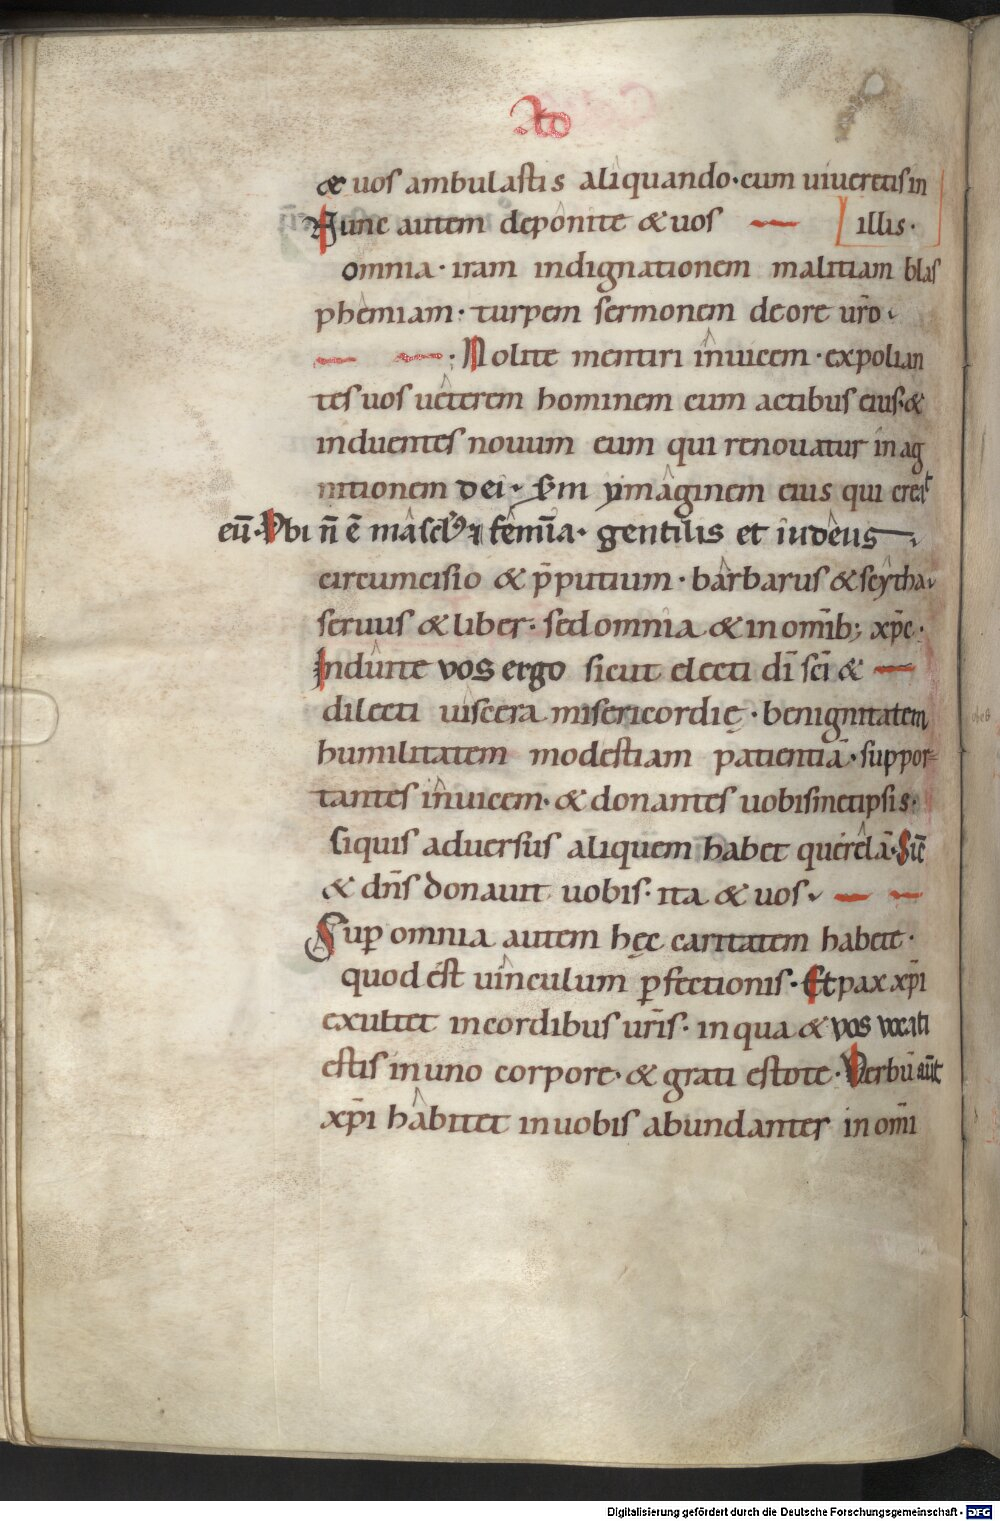 Ad
& uos ambulastis aliquando·cum uiueretis in
Nunc autem deponite & uos illis·
omnia· iram indignationem malitiam blas
phemiam· turpem sermonem de ore ur̄o·
Nolite mentiri inuicem· expolian
tes uos ueterem hominem cum actibus eius·&
induentes nouum eum qui renouatur in ag
nitionem dei· scd̄m ymaginem eius qui creat
eū· Vbi n̄ ē mascl'9 & femīa· gentilis et iudeus
circumcisio & p̄putium· barbarus & scytha·
seruus & liber· sed omnia & in om̄ib; xp̄c·
Induite vos ergo sicut electi dī scī &
dilecti uiscera misericordię· benignitatem
humilitatem modestiam patientiā· suppor
tantes inuicem· & donantes uobismetipsis·
siquis aduersus aliquem habet querelā· Sic̄
& dn̄s donauit uobis· ita & uos·
Sup omnia autem hęc caritatem habete·
quod est uinculum ꝑfectionis· Et pax xp̄i
exultet in cordibus ur̄is· in qua & vos vocati
estis in uno corpore· & grati estote· Verbū aūt
xp̄i habitet in uobis abundanter in om̄i
Digitalisierung gefördert durch die Deutsche Forschungsgemeinschaft - DFG